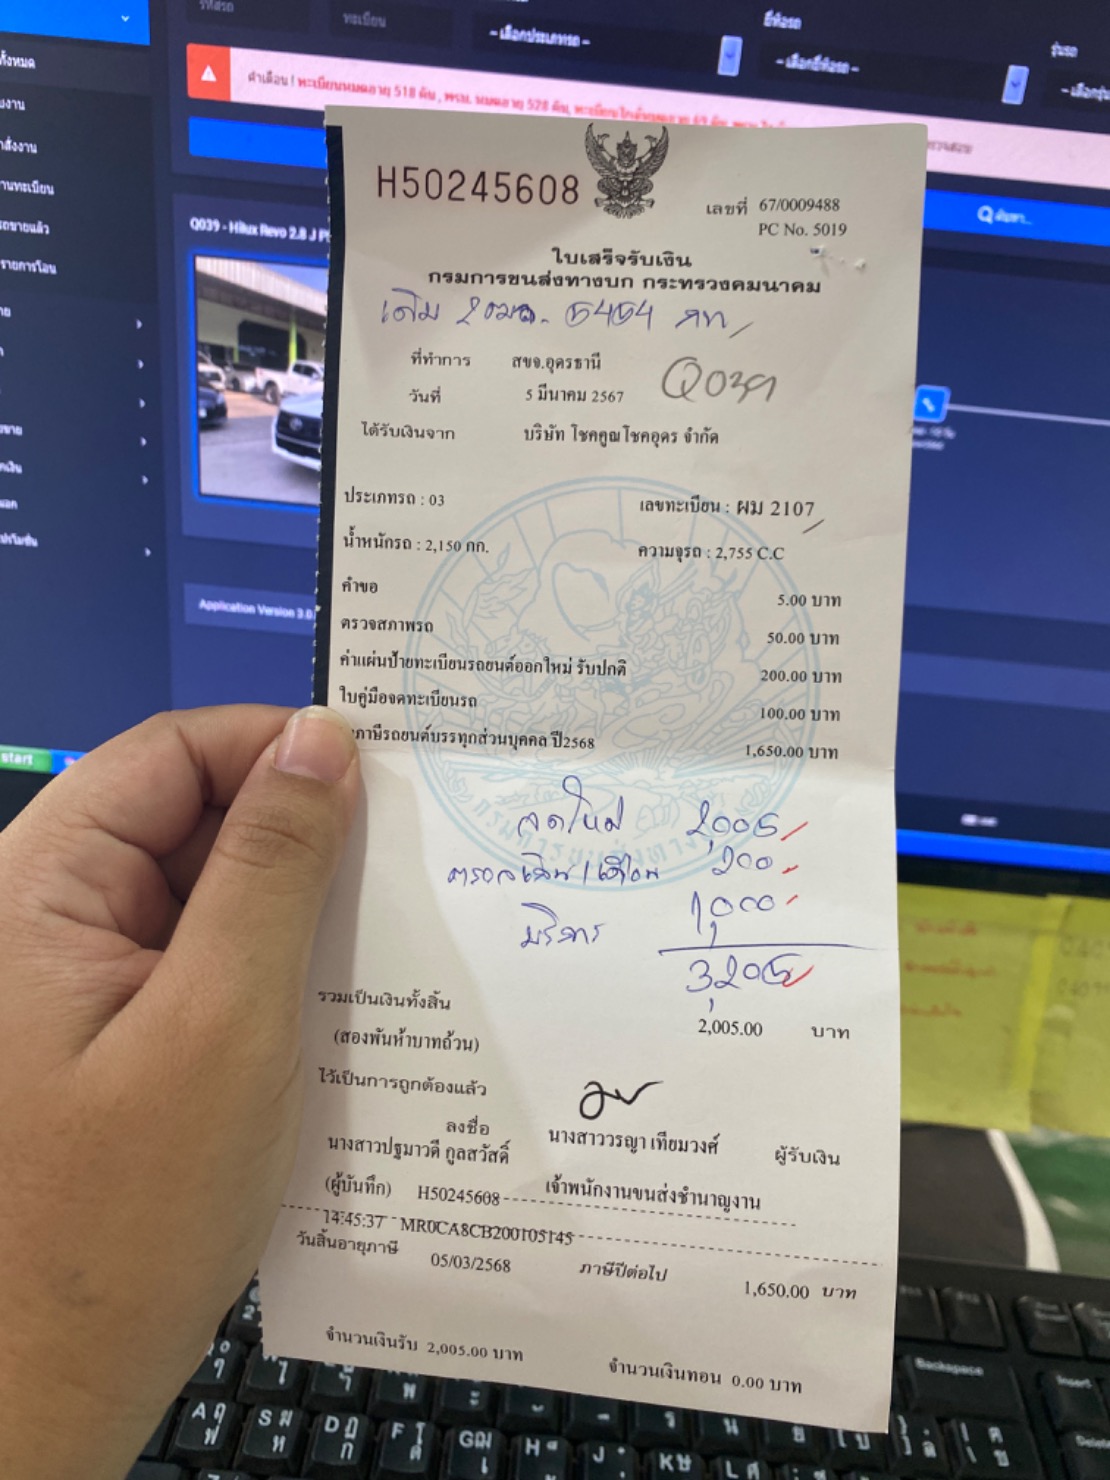 รหัสรถ
ทะเบียน
- เลือกประเภทรถ -
ยี่ห้อรถ
- เลือกยี่ห้อรถ -
รุ่นรถ
คำเตือน ! ทะเบียนหมดอายุ 518 คัน , พรบ. หมดอายุ 528 คัน,
ค้นหา...
Q039 - Hilux Revo 2.8 J
Application Version 3.0.
start
H50245608
เลขที่ 67/0009488
PC No. 5019
ใบเสร็จรับเงิน
กรมการขนส่งทางบก กระทรวงคมนาคม
เดิม 2ฒฉ. 5454 กท
ที่ทำการ สขจ.อุดรธานี
Q039
วันที่ 5 มีนาคม 2567
ได้รับเงินจาก บริษัท โชคคูณโชคอุดร จำกัด
ประเภทรถ : 03 เลขทะเบียน : ผม 2107
น้ำหนักรถ : 2,150 กก. ความจุรถ : 2,755 C.C
คำขอ 5.00 บาท
ตรวจสภาพรถ 50.00 บาท
ค่าแผ่นป้ายทะเบียนรถยนต์ออกใหม่ รับปกติ 200.00 บาท
ใบคู่มือจดทะเบียนรถ 100.00 บาท
ภาษีรถยนต์บรรทุกส่วนบุคคล ปี2568 1,650.00 บาท
จดใหม่ 2,005
200
บริการ 1,000
3,205
รวมเป็นเงินทั้งสิ้น 2,005.00 บาท
(สองพันห้าบาทถ้วน)
ไว้เป็นการถูกต้องแล้ว
ลงชื่อ
นางสาวปฐมาวดี กูลสวัสดิ์ นางสาววรญา เทียมวงศ์ ผู้รับเงิน
(ผู้บันทึก) H50245608 เจ้าพนักงานขนส่งชำนาญงาน
14:45:37 MR0CA8CB200105145
วันสิ้นอายุภาษี 05/03/2568 ภาษีปีต่อไป 1,650.00 บาท
จำนวนเงินรับ 2,005.00 บาท จำนวนเงินทอน 0.00 บาท
Backspace
Insert
Delete